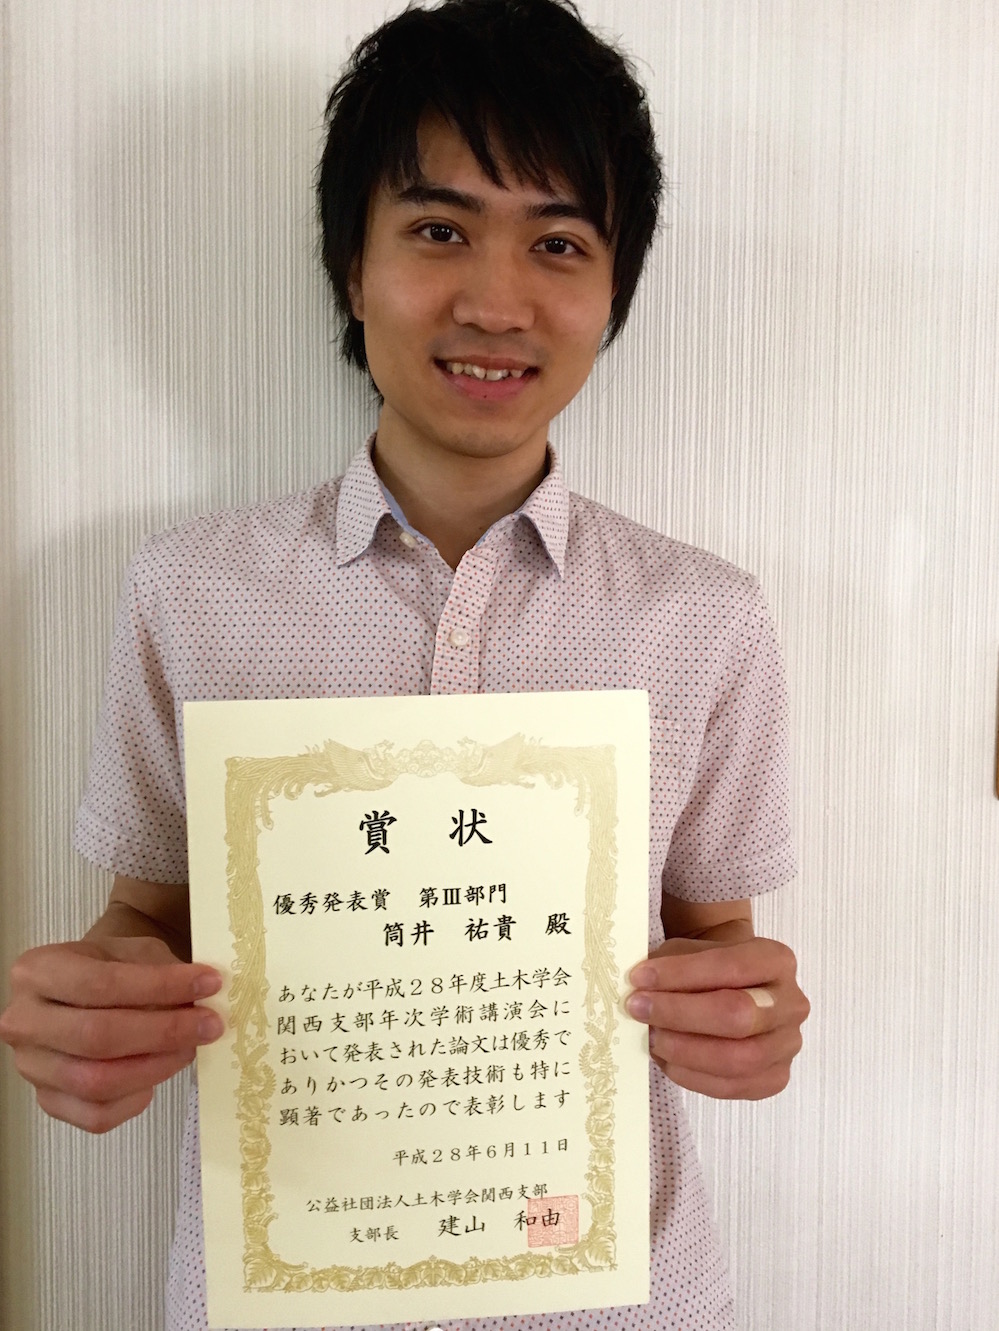 賞 状
優秀発表賞 第Ⅲ部門
筒井 祐貴 殿
あなたが平成28年度土木学会
関西支部年次学術講演会に
おいて発表された論文は優秀で
ありかつその発表技術も特に
顕著であったので表彰します
平成28年6月11日
公益社団法人土木学会関西支部
支部長 建山 和由